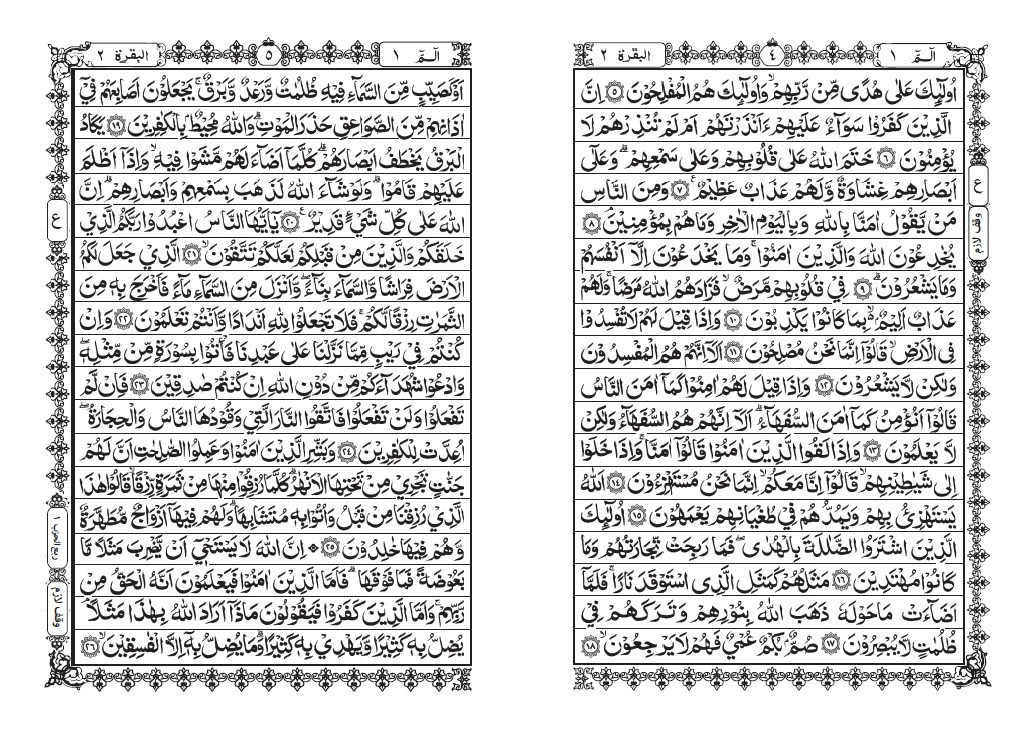 الٓمّٓ ١
٤
البقرة ٢
اُولٰٓئِكَ عَلٰى هُدًى مِّنْ رَّبِّهِمْ ۙ وَاُولٰٓئِكَ هُمُ الْمُفْلِحُوْنَ ۝٥ اِنَّ
الَّذِيْنَ كَفَرُوْا سَوَآءٌ عَلَيْهِمْ ءَاَنْذَرْتَهُمْ اَمْ لَمْ تُنْذِرْهُمْ لَا
يُؤْمِنُوْنَ ۝٦ خَتَمَ اللّٰهُ عَلٰى قُلُوْبِهِمْ وَعَلٰى سَمْعِهِمْ ؕ وَعَلٰٓى
اَبْصَارِهِمْ غِشَاوَةٌ وَّلَهُمْ عَذَابٌ عَظِيْمٌ ۝٧ وَمِنَ النَّاسِ
مَنْ يَّقُوْلُ اٰمَنَّا بِاللّٰهِ وَبِالْيَوْمِ الْاٰخِرِ وَمَاهُمْ بِمُؤْمِنِيْنَ ۝٨
يُخٰدِعُوْنَ اللّٰهَ وَالَّذِيْنَ اٰمَنُوْا ۚ وَمَا يَخْدَعُوْنَ اِلَّآ اَنْفُسَهُمْ
وَمَا يَشْعُرُوْنَ ۝٩ فِيْ قُلُوْبِهِمْ مَّرَضٌ ۙ فَزَادَهُمُ اللّٰهُ مَرَضًا ۚ وَلَهُمْ
عَذَابٌ اَلِيْمٌۢ ۙ بِمَا كَانُوْا يَكْذِبُوْنَ ۝١٠ وَاِذَا قِيْلَ لَهُمْ لَا تُفْسِدُوْا
فِى الْاَرْضِ ۙ قَالُوْٓا اِنَّمَا نَحْنُ مُصْلِحُوْنَ ۝١١ اَلَآ اِنَّهُمْ هُمُ الْمُفْسِدُوْنَ
وَلٰكِنْ لَّا يَشْعُرُوْنَ ۝١٢ وَاِذَا قِيْلَ لَهُمْ اٰمِنُوْا كَمَآ اٰمَنَ النَّاسُ
قَالُوْٓا اَنُؤْمِنُ كَمَآ اٰمَنَ السُّفَهَآءُ ؕ اَلَآ اِنَّهُمْ هُمُ السُّفَهَآءُ وَلٰكِنْ
لَّا يَعْلَمُوْنَ ۝١٣ وَاِذَا لَقُوا الَّذِيْنَ اٰمَنُوْا قَالُوْٓا اٰمَنَّا ۚ وَاِذَا خَلَوْا
اِلٰى شَيٰطِيْنِهِمْ ۙ قَالُوْٓا اِنَّا مَعَكُمْ ۙ اِنَّمَا نَحْنُ مُسْتَهْزِءُوْنَ ۝١٤ اَللّٰهُ
يَسْتَهْزِئُ بِهِمْ وَيَمُدُّهُمْ فِيْ طُغْيَانِهِمْ يَعْمَهُوْنَ ۝١٥ اُولٰٓئِكَ
الَّذِيْنَ اشْتَرَوُا الضَّلٰلَةَ بِالْهُدٰى ۪ فَمَا رَبِحَتْ تِّجَارَتُهُمْ وَمَا
كَانُوْا مُهْتَدِيْنَ ۝١٦ مَثَلُهُمْ كَمَثَلِ الَّذِى اسْتَوْقَدَ نَارًا ۚ فَلَمَّآ
اَضَآءَتْ مَاحَوْلَهٗ ذَهَبَ اللّٰهُ بِنُوْرِهِمْ وَتَرَكَهُمْ فِيْ
ظُلُمٰتٍ لَّا يُبْصِرُوْنَ ۝١٧ صُمٌّۢ بُكْمٌ عُمْيٌ فَهُمْ لَا يَرْجِعُوْنَ ۝١٨
ع
وقف لازم
الٓمّٓ ١
٥
البقرة ٢
اَوْ كَصَيِّبٍ مِّنَ السَّمَآءِ فِيْهِ ظُلُمٰتٌ وَّرَعْدٌ وَّبَرْقٌ ۚ يَجْعَلُوْنَ اَصَابِعَهُمْ فِيْٓ
اٰذَانِهِمْ مِّنَ الصَّوَاعِقِ حَذَرَ الْمَوْتِ ؕ وَاللّٰهُ مُحِيْطٌۢ بِالْكٰفِرِيْنَ ۝١٩ يَكَادُ
الْبَرْقُ يَخْطَفُ اَبْصَارَهُمْ ؕ كُلَّمَآ اَضَآءَ لَهُمْ مَّشَوْا فِيْهِ ۙ وَاِذَآ اَظْلَمَ
عَلَيْهِمْ قَامُوْا ؕ وَلَوْ شَآءَ اللّٰهُ لَذَهَبَ بِسَمْعِهِمْ وَاَبْصَارِهِمْ ؕ اِنَّ
اللّٰهَ عَلٰى كُلِّ شَيْءٍ قَدِيْرٌ ۝٢٠ يٰٓاَيُّهَا النَّاسُ اعْبُدُوْا رَبَّكُمُ الَّذِيْ
خَلَقَكُمْ وَالَّذِيْنَ مِنْ قَبْلِكُمْ لَعَلَّكُمْ تَتَّقُوْنَ ۝٢١ الَّذِيْ جَعَلَ لَكُمُ
الْاَرْضَ فِرَاشًا وَّالسَّمَآءَ بِنَآءً ۪ وَّاَنْزَلَ مِنَ السَّمَآءِ مَآءً فَاَخْرَجَ بِهٖ مِنَ
الثَّمَرٰتِ رِزْقًا لَّكُمْ ۚ فَلَا تَجْعَلُوْا لِلّٰهِ اَنْدَادًا وَّاَنْتُمْ تَعْلَمُوْنَ ۝٢٢ وَاِنْ
كُنْتُمْ فِيْ رَيْبٍ مِّمَّا نَزَّلْنَا عَلٰى عَبْدِنَا فَاْتُوْا بِسُوْرَةٍ مِّنْ مِّثْلِهٖ ۪
وَادْعُوْا شُهَدَآءَكُمْ مِّنْ دُوْنِ اللّٰهِ اِنْ كُنْتُمْ صٰدِقِيْنَ ۝٢٣ فَاِنْ لَّمْ
تَفْعَلُوْا وَلَنْ تَفْعَلُوْا فَاتَّقُوا النَّارَ الَّتِيْ وَقُوْدُهَا النَّاسُ وَالْحِجَارَةُ ۖۚ
اُعِدَّتْ لِلْكٰفِرِيْنَ ۝٢٤ وَبَشِّرِ الَّذِيْنَ اٰمَنُوْا وَعَمِلُوا الصّٰلِحٰتِ اَنَّ لَهُمْ
جَنّٰتٍ تَجْرِيْ مِنْ تَحْتِهَا الْاَنْهٰرُ ؕ كُلَّمَا رُزِقُوْا مِنْهَا مِنْ ثَمَرَةٍ رِّزْقًا ۙ قَالُوْا هٰذَا
الَّذِيْ رُزِقْنَا مِنْ قَبْلُ ۙ وَاُتُوْا بِهٖ مُتَشَابِهًا ؕ وَلَهُمْ فِيْهَآ اَزْوَاجٌ مُّطَهَّرَةٌ
وَّهُمْ فِيْهَا خٰلِدُوْنَ ۝٢٥ اِنَّ اللّٰهَ لَا يَسْتَحْيٖٓ اَنْ يَّضْرِبَ مَثَلًا مَّا
بَعُوْضَةً فَمَا فَوْقَهَا ؕ فَاَمَّا الَّذِيْنَ اٰمَنُوْا فَيَعْلَمُوْنَ اَنَّهُ الْحَقُّ مِنْ
رَّبِّهِمْ ۚ وَاَمَّا الَّذِيْنَ كَفَرُوْا فَيَقُوْلُوْنَ مَاذَآ اَرَادَ اللّٰهُ بِهٰذَا مَثَلًا ۘ
يُضِلُّ بِهٖ كَثِيْرًا ۙ وَّيَهْدِيْ بِهٖ كَثِيْرًا ؕ وَمَا يُضِلُّ بِهٖٓ اِلَّا الْفٰسِقِيْنَ ۝٢٦
ع
ربع الحزب ١
وقف لازم